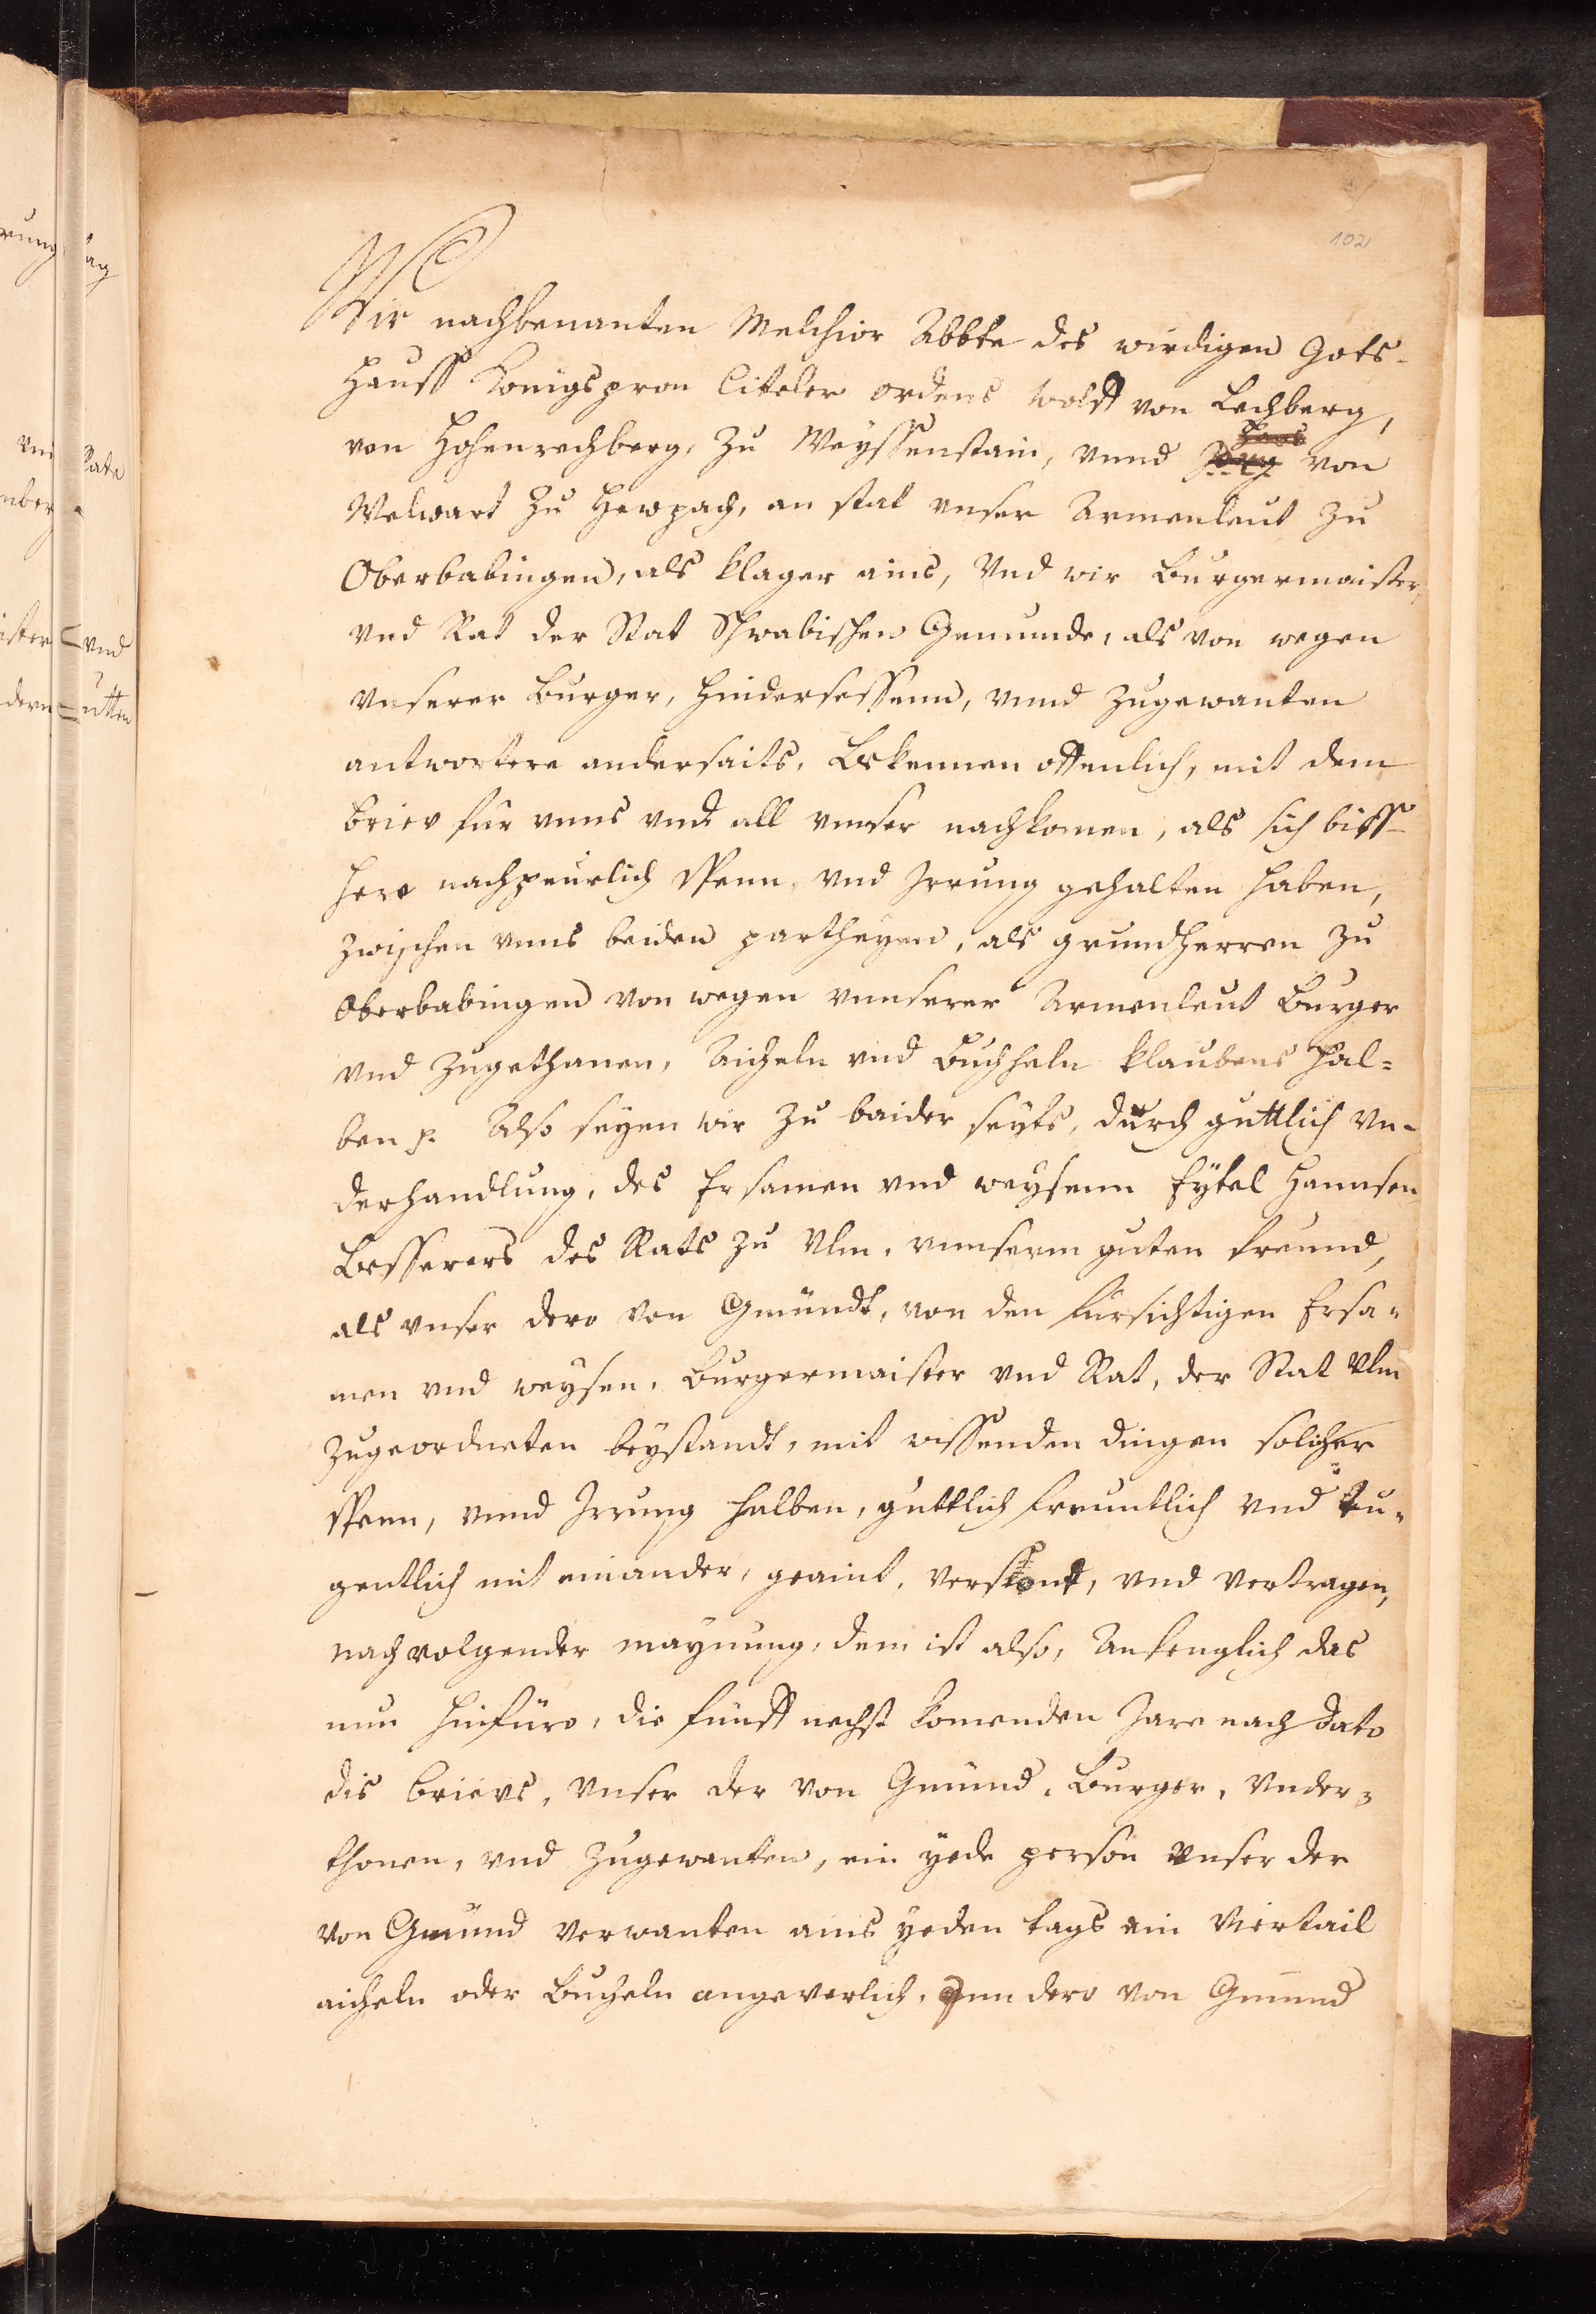 102
Wir nachbenanten Melchior Abbte des wirdigen Gots-
hauss Konigspron Citeler ordens Wolff von Rechberg,
von Hohenrechberg, zu Weyssenstain, vnnd von
Welwart zu Hewpach, an stat vnser Armenleut zu
Oberbabingen, als klager ains, Vnd wir Burgermaister
vnd Rat der Stat Schwabischen Gemunde, als von wegen
vnserer Burger, Hindersessenn, vnnd zugewanten
antwortere anderseits, Bekennen offenlich, mit dem
briev für vnns vnd all vnnser nachkomen, als sich biss-
here nachpeurlich Spenn, vnd Irrung gehalten haben,
zwischen vnns beiden partheyen, als grundherren zu
Oberbabingen von wegen vnnserer Armenleut Burger
vnd zugethanen, Aicheln vnd Buchheln klaubens hal=
ben p. Also seyen wir zu baider seyts, durch guttlich Vn-
derhandlung, des Ersamen vnd weysenn Eytel Hannsen
Besserers des Rats zu Vlm, vnnserm guten freund,
als vnser dero von Gmündt, von den fursichtigen Ersa=
men vnd weysen, Burgermaister vnd Rat, der Stat Vlm
zugeordneten beystandt, mit wissenden dingen solicher
Spenn, vnnd Irrung halben, guttlich freuntlich vnd tu=
gentlich mit einander, geaint, versont, vnd vertragen,
nachvolgender maynung, dem ist also, Anfenglich das
nun hinfüro, die fünff nechst komenden Jare nach dato
dis brievs, vnser der von Gmünd, Burger, vnder=
thonen, vnd zugewanten, ein yede person vnser der
von Gmünd verwanten ains yeden tags ein Viertail
aicheln oder Bucheln angeverlich, Inn dero von Gmund